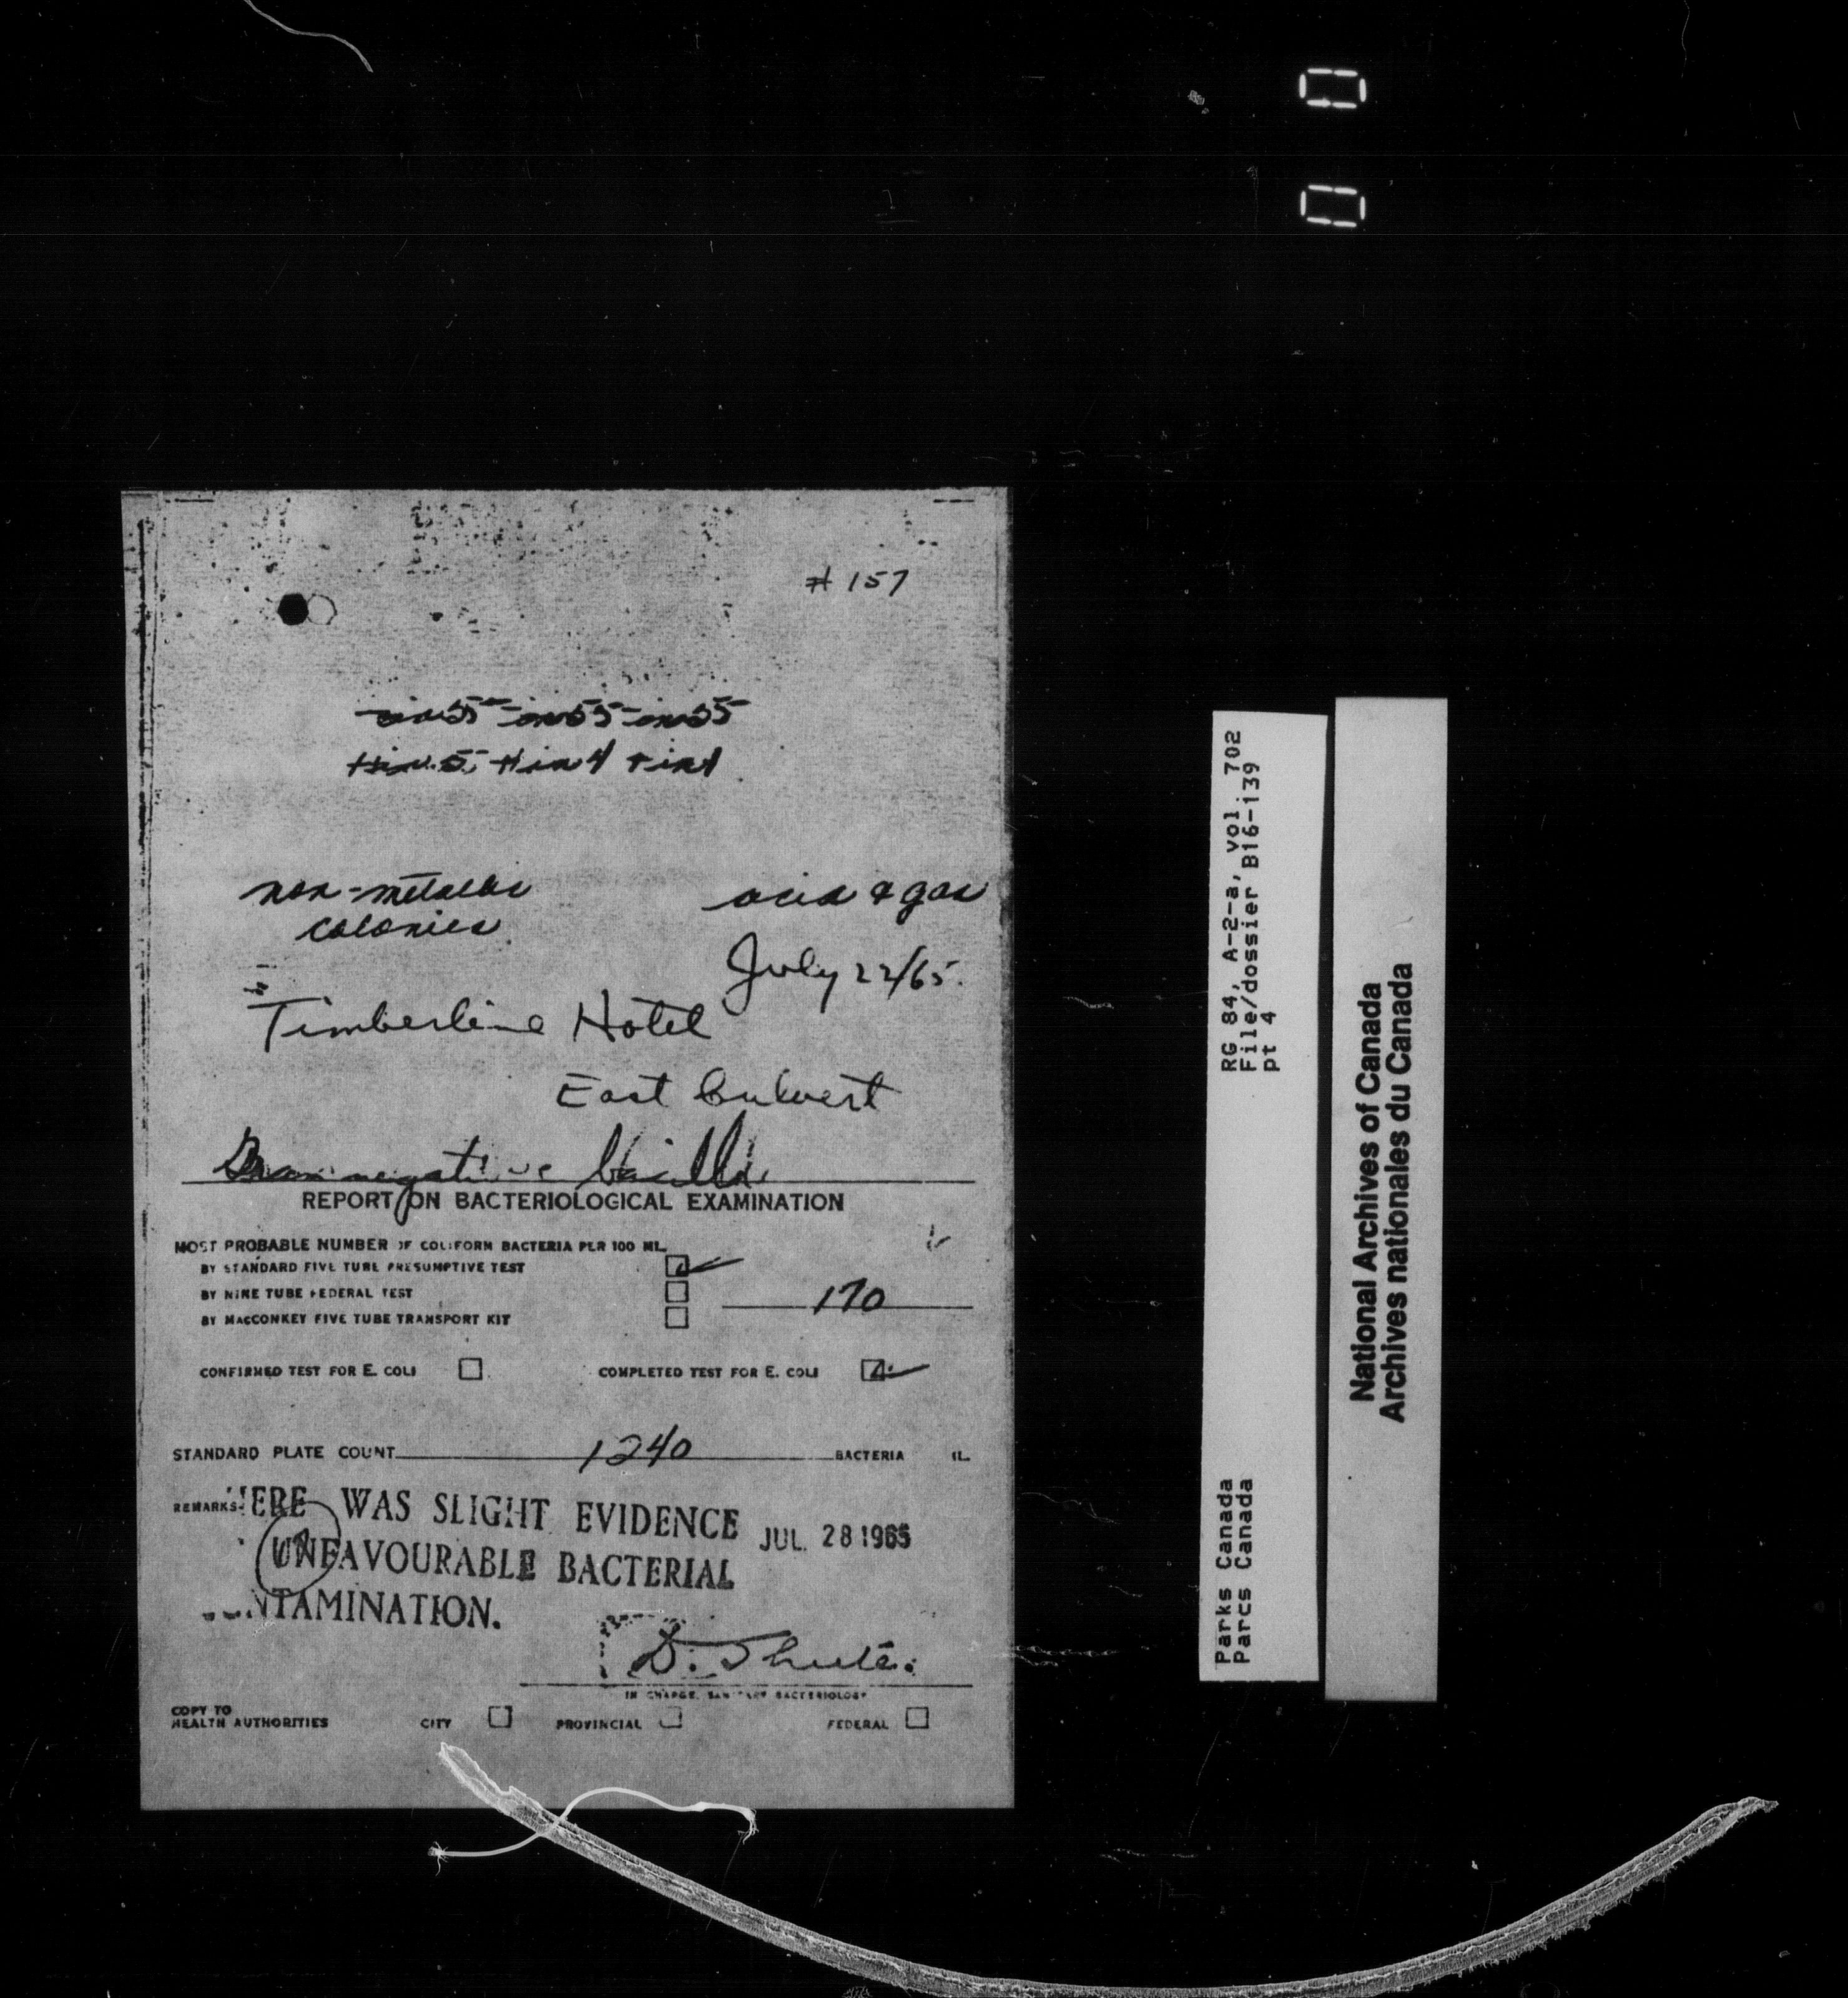 # 157
non-metallic
colonies
acid & gas
July 22/65.
Timberline Hotel
East Culvert
Gram negative bacilli
REPORT ON BACTERIOLOGICAL EXAMINATION
MOST PROBABLE NUMBER OF COLIFORM BACTERIA PER 100 ML.
BY STANDARD FIVE TUBE PRESUMPTIVE TEST
BY NINE TUBE FEDERAL TEST
170
BY MACCONKEY FIVE TUBE TRANSPORT KIT
CONFIRMED TEST FOR E. COLI COMPLETED TEST FOR E. COLI
STANDARD PLATE COUNT 1240 BACTERIA IL.
REMARKS- HERE WAS SLIGHT EVIDENCE
JUL 28 1965
UNFAVOURABLE BACTERIAL
NTAMINATION.
D. Shute.
IN CHARGE, SANITARY BACTERIOLOGY
COPY TO
HEALTH AUTHORITIES CITY PROVINCIAL FEDERAL
RG 84, A-2-a, vol. 702
File/dossier B16-139
pt 4
Parks Canada
Parcs Canada
National Archives of Canada
Archives nationales du Canada
00